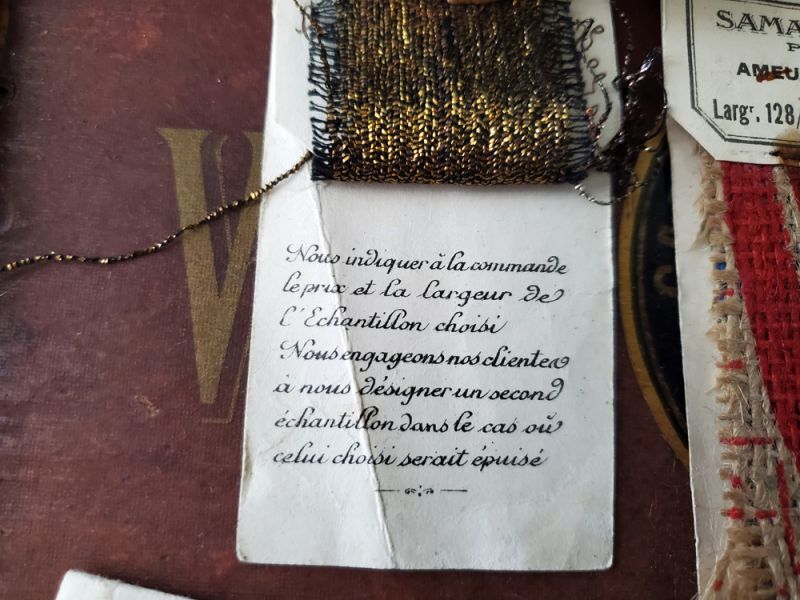 Nous indiquer à la commande
le prix et la largeur de
l'Echantillon choisi
Nous engageons nos clientes
à nous désigner un second
échantillon dans le cas où
celui choisi serait épuisé
SAMA
P
AMEU
Largr. 128/
W